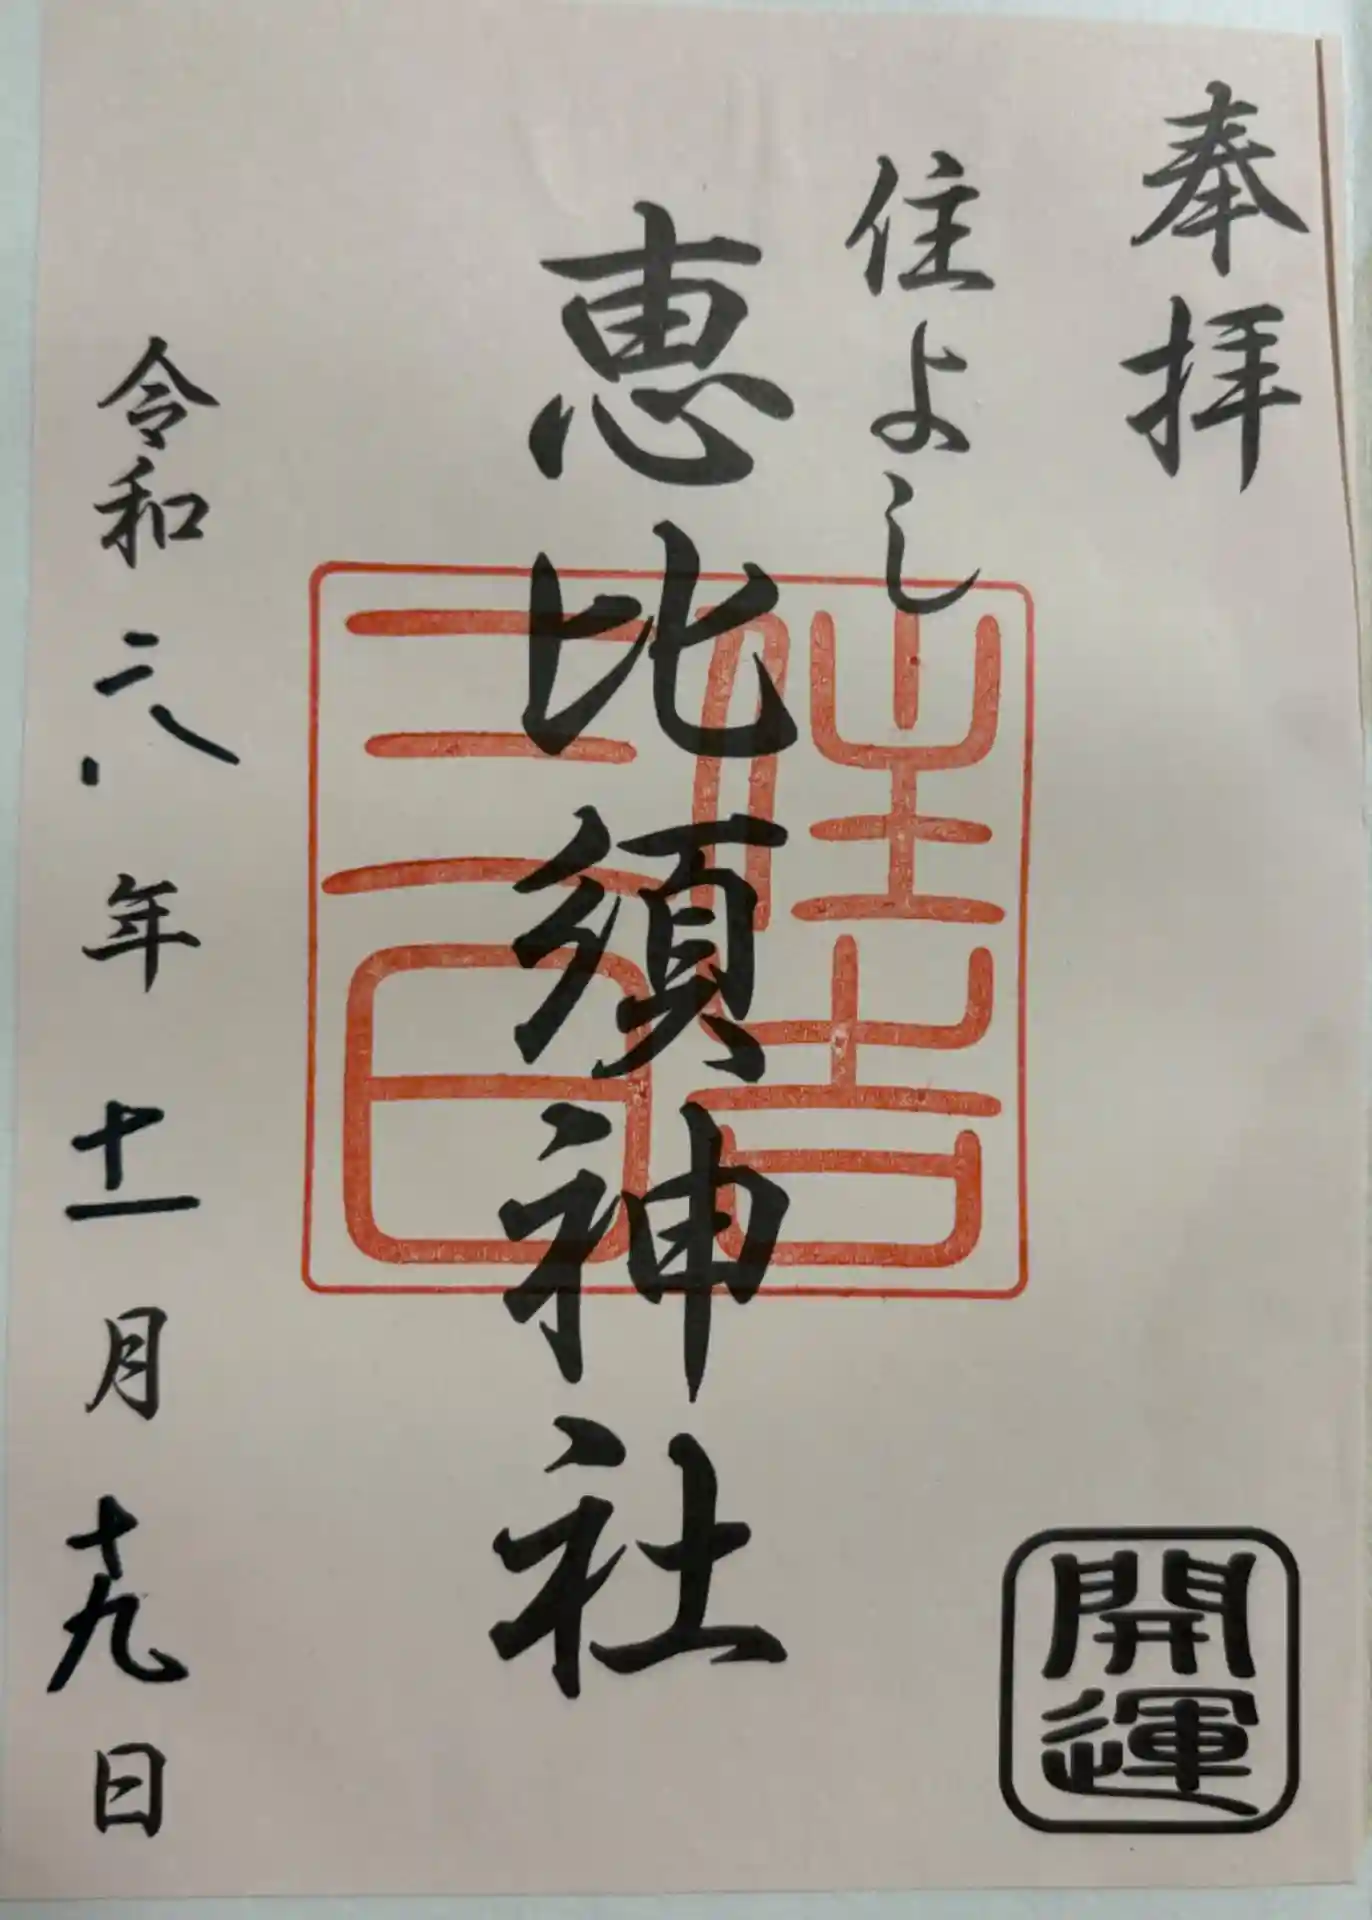 奉拝
住よし
恵比須神社
令和六年十一月十九日
住吉
三日
開運